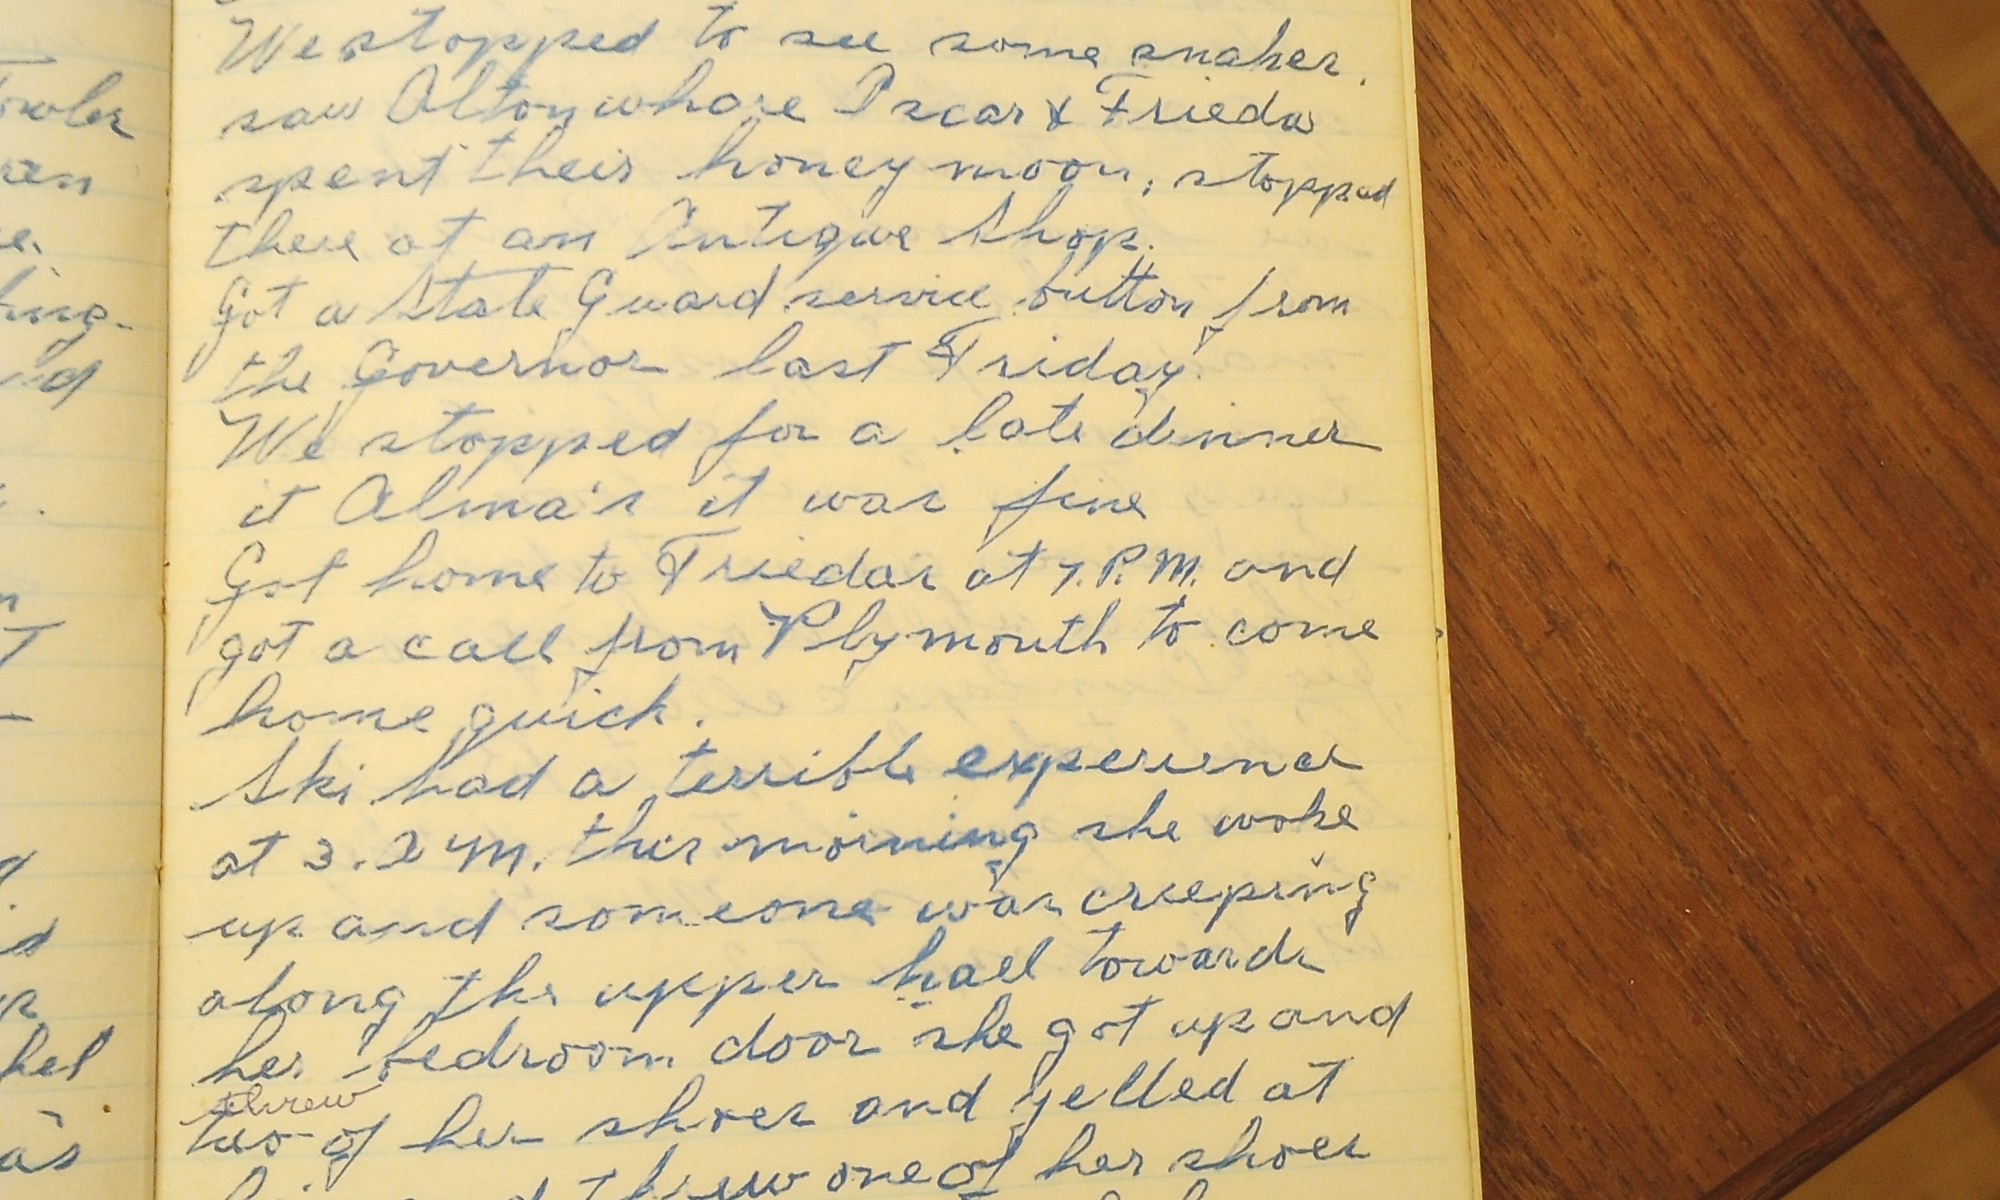 We stopped to see some snakes.
saw Alton whare Oscar & Frieda
spent their honey moon, stopped
there at an Antique Shop.
Got a State Guard service button from
the Governor last Friday.
We stopped for a late dinner
it Alma's it was fine
Got home to Friedas at 7. P.M. and
got a call from Plymouth to come
home quick.
Ski had a terrible experience
at 3. A M. this morning she woke
up and someone was creeping
along the upper hall towards
her bedroom door she got up and
threw
two of her shoes and yelled at
threw one of her shoes